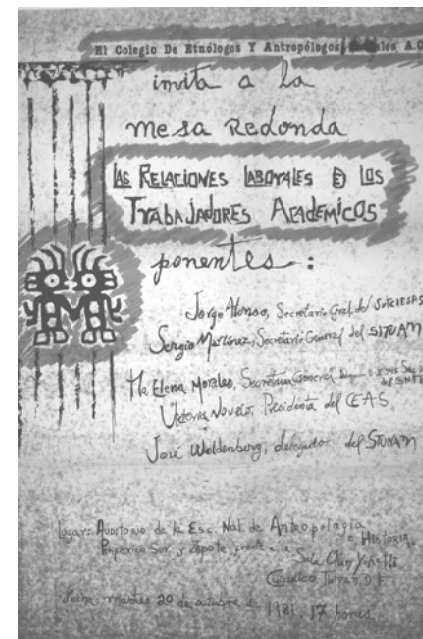 El Colegio De Etnólogos Y Antropólogos Sociales, A.C.
invita a la
mesa Redonda
LAS RELACIONES LABORALES DE LOS
TRABAJADORES ACADEMICOS
ponentes:
Jorge Alonso, Secretario Gral. del SUTCIESAS
Sergio Martínez, Secretario General del SITUAM
Ma Elena Morales, Secretaria General
del SNTE
Victoria Novelo, Presidenta del CEAS
José Woldenberg, delegado del STUNAM
Lugar: Auditorio de la Esc. Nal. de Antropología
e HISTORIA,
Periférico Sur y Zapote, frente a la Sala Ollin Yoliztli
Cuicuilco, Tlalpan, D.F.
Fecha: martes 20 de octubre de 1981, 17 horas